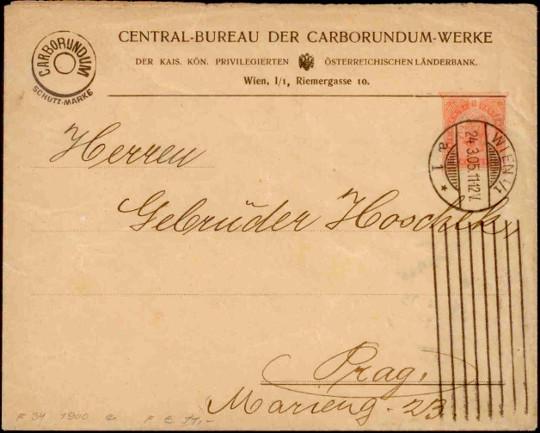 CARBORUNDUM
SCHUTZ-MARKE
CENTRAL-BUREAU DER CARBORUNDUM-WERKE
DER KAIS. KÖN. PRIVILEGIERTEN ÖSTERREICHISCHEN LÄNDERBANK.
Wien, I/1, Riemergasse 10.
WIEN 1/1
24.3.05.11-12V.
a 1 *
Herren
Gebrüder Hoschek,
Prag,
Marieng. 23.
F 34 1900